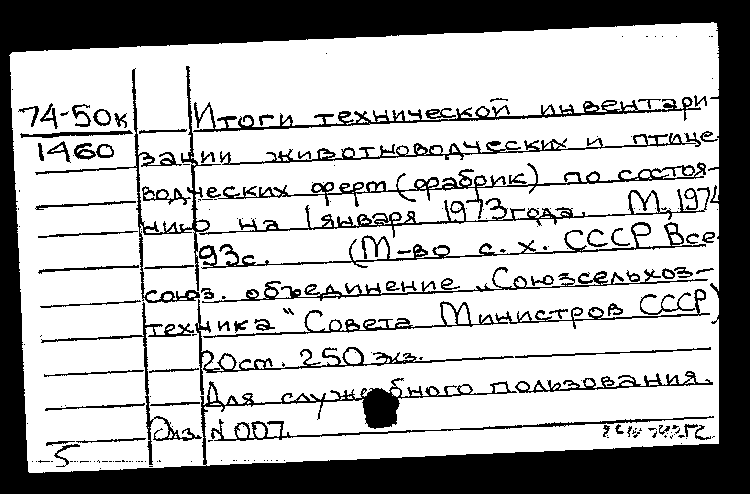 74-50к
1460
Итоги технической инвентари-
зации животноводческих и птице
водческих ферм (фабрик) по состоя-
нию на 1 января 1973 года. М, 1974
93с. (М-во с. х. СССР Все-
союз. объединение „Союзсельхоз-
техника" Совета Министров СССР)
20см. 250 экз.
Для служебного пользования.
Экз. N 007.
5